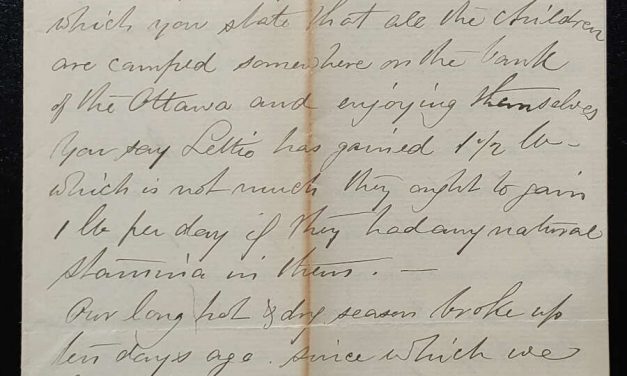 which you state that all the children
are camped somewhere on the bank
of the Ottawa and enjoying themselves
You say Lettie has gained 1 1/2 lb -
which is not much they ought to gain
1 lb per day if they had any natural
stamina in them. —
Our long hot & dry season broke up
ten days ago. since which we